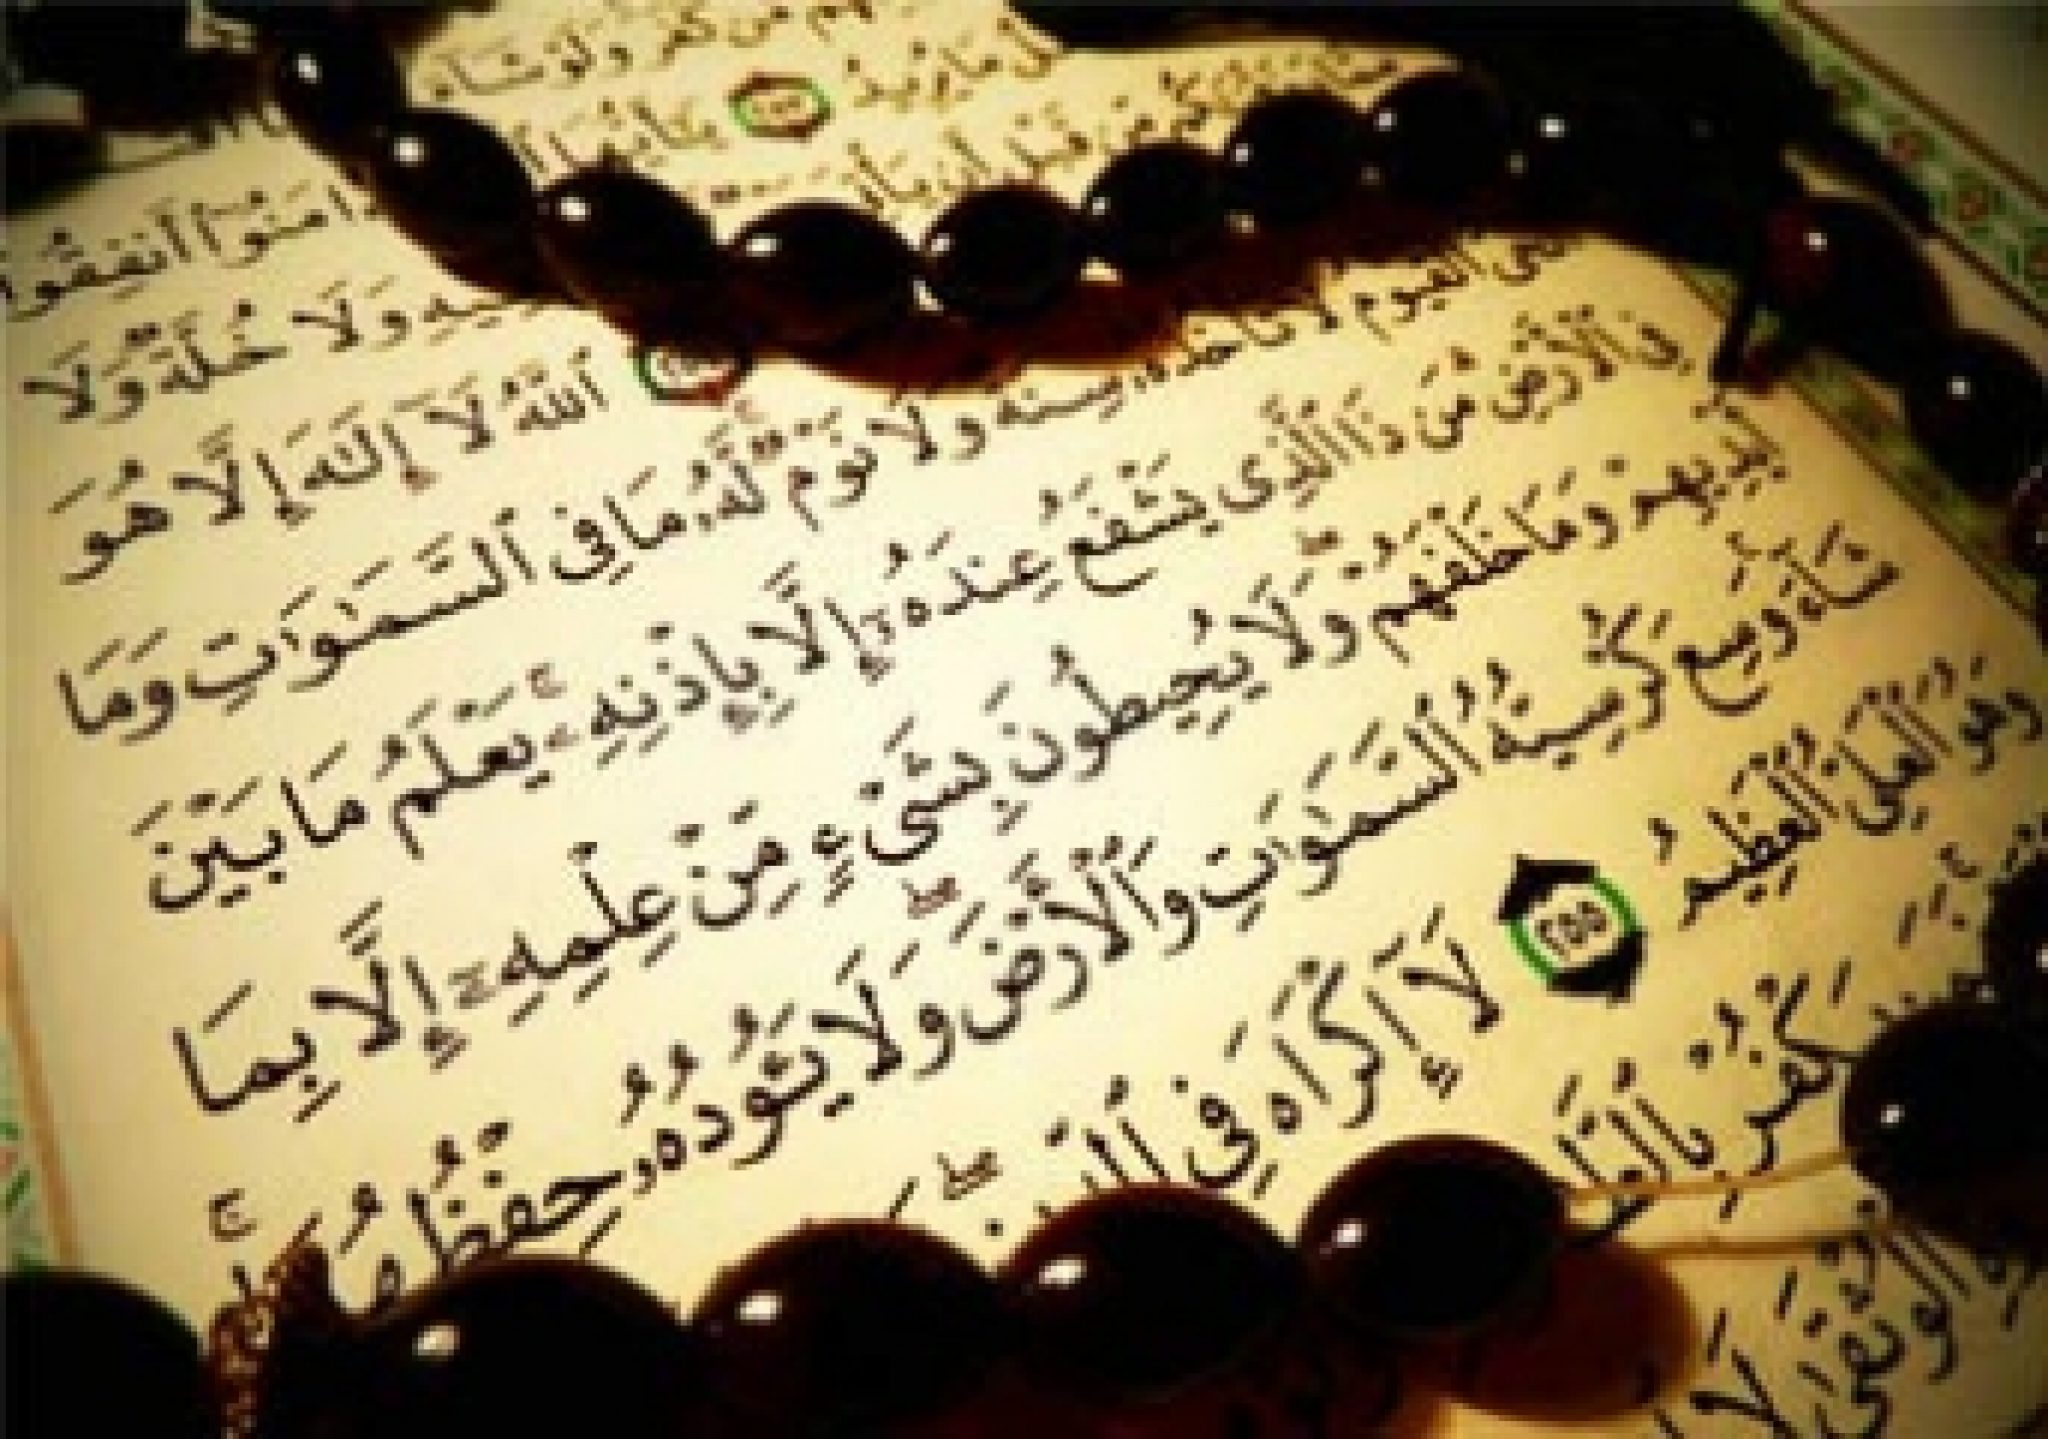 من كفر ولو شاء
ما يريد ٢٥٣ يَٰٓأَيُّهَا
ءَامَنُوٓا۟ أَنفِقُوا۟ من قبل أن يأتى
فِيهِ وَلَا خُلَّةٌ وَلَا
ٱللَّهُ لَآ إِلَٰهَ إِلَّا هُوَ
ٱلْقَيُّومُ لَا تَأْخُذُهُۥ سِنَةٌ وَلَا نَوْمٌ لَّهُۥ مَا فِى ٱلسَّمَٰوَٰتِ وَمَا
فِى ٱلْأَرْضِ مَن ذَا ٱلَّذِى يَشْفَعُ عِندَهُۥٓ إِلَّا بِإِذْنِهِۦ ۚ يَعْلَمُ مَا بَيْنَ
أَيْدِيهِمْ وَمَا خَلْفَهُمْ ۖ وَلَا يُحِيطُونَ بِشَىْءٍ مِّنْ عِلْمِهِۦٓ إِلَّا بِمَا
شَآءَ ۚ وَسِعَ كُرْسِيُّهُ ٱلسَّمَٰوَٰتِ وَٱلْأَرْضَ ۖ وَلَا يَـُٔودُهُۥ حِفْظُهُمَا ۚ
وَهُوَ ٱلْعَلِىُّ ٱلْعَظِيمُ ٢٥٥ لَآ إِكْرَاهَ فِى ٱلدِّينِ ۖ
يَكْفُرْ
ٱلْوُثْقَىٰ لَا